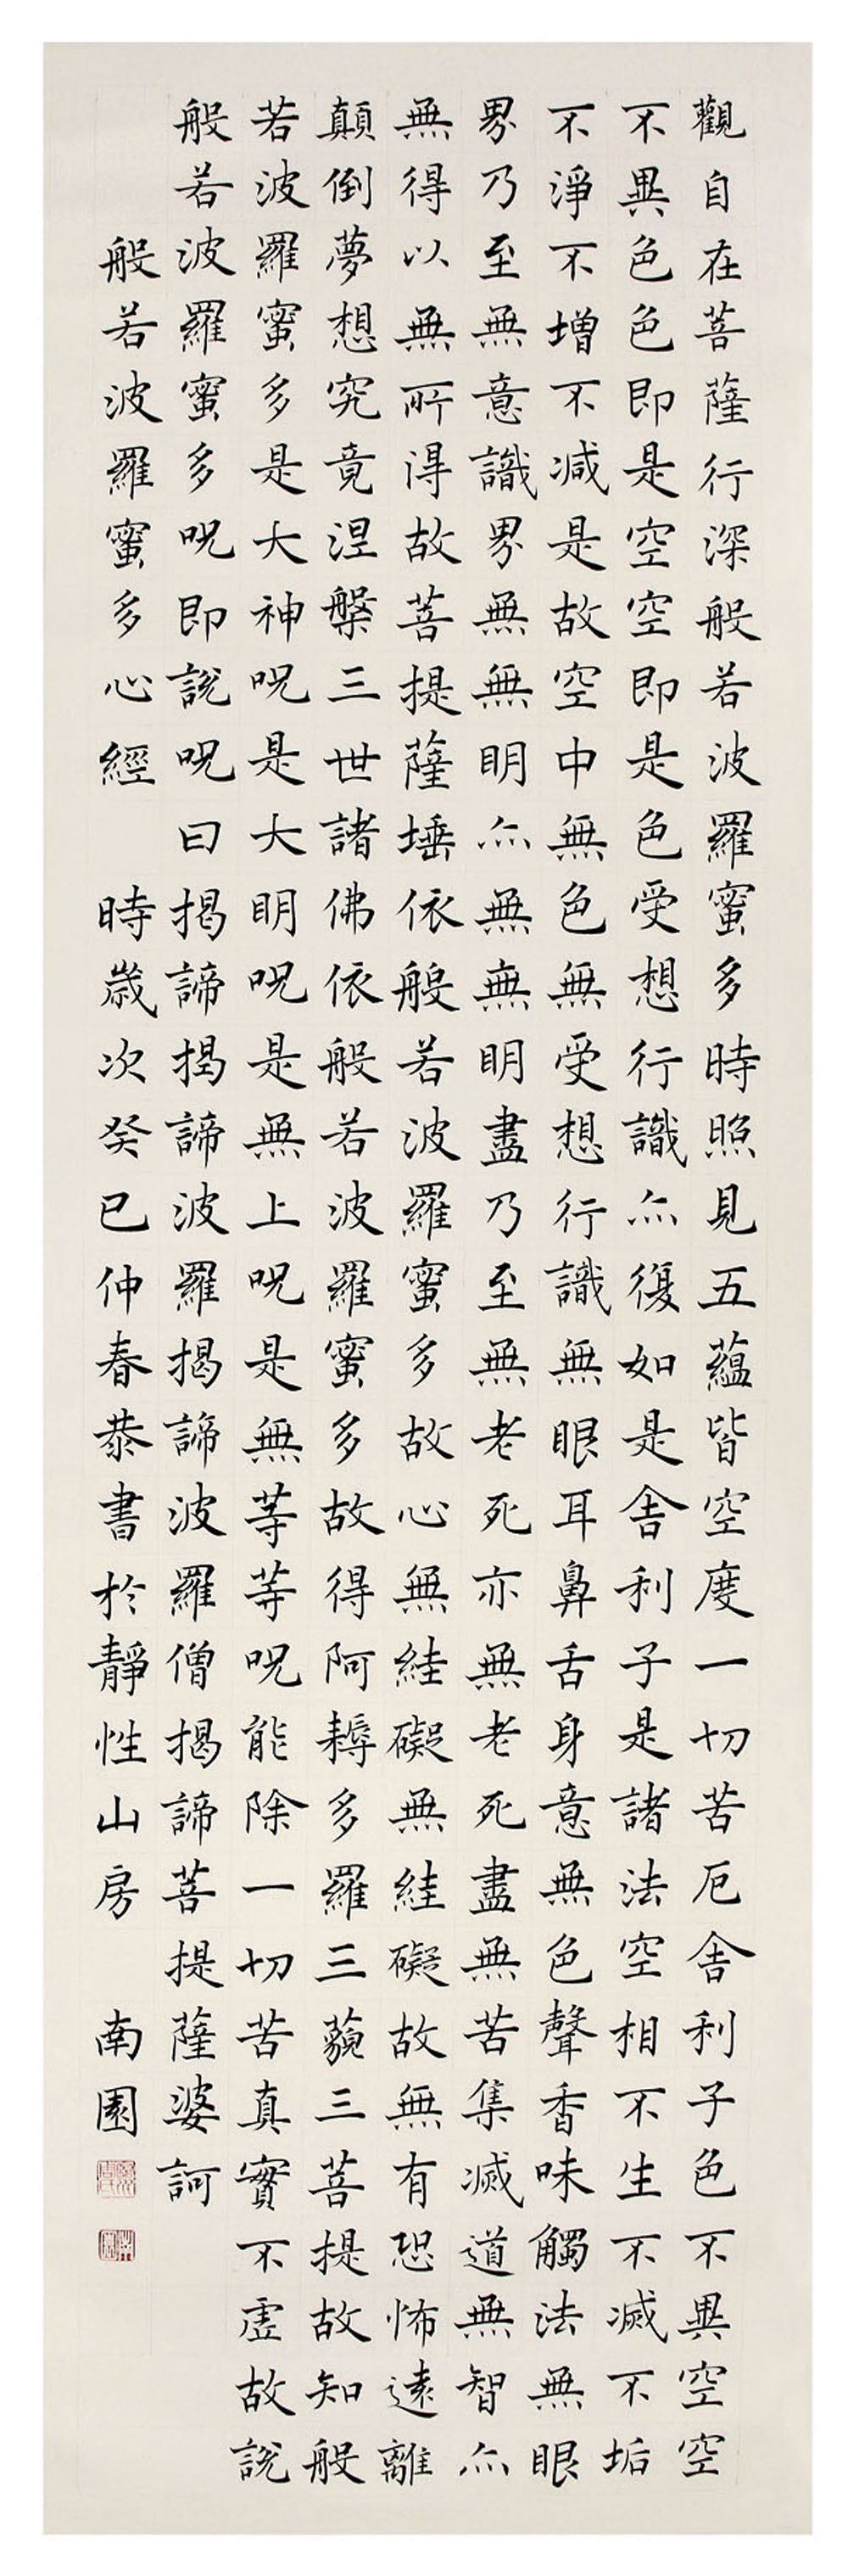 觀自在菩薩行深般若波羅蜜多時照見五蘊皆空度一切苦厄舍利子色不異空空
不異色色即是空空即是色受想行識亦復如是舍利子是諸法空相不生不滅不垢
不淨不增不減是故空中無色無受想行識無眼耳鼻舌身意無色聲香味觸法無眼
界乃至無意識界無無明亦無無明盡乃至無老死亦無老死盡無苦集滅道無智亦
無得以無所得故菩提薩埵依般若波羅蜜多故心無絓礙無絓礙故無有恐怖遠離
顛倒夢想究竟涅槃三世諸佛依般若波羅蜜多故得阿耨多羅三藐三菩提故知般
若波羅蜜多是大神呪是大明呪是無上呪是無等等呪能除一切苦真實不虛故說
般若波羅蜜多呪即說呪曰揭諦揭諦波羅揭諦波羅僧揭諦菩提薩婆訶
般若波羅蜜多心經 時歲次癸巳仲春恭書於靜性山房 南園